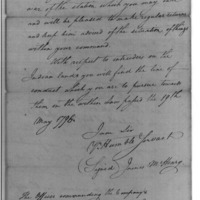 one of the
and will be pleased to make regular
and keep him advised of the situation of things
within your command.
With respect to intruders on the
Indian lands you will find the line of
conduct which you are to pursue towards
them in the written law passed the 19th
May 1796.
I am Sir
Yr Humb Servant
Signed James McHenry
The Officer commanding the Troops